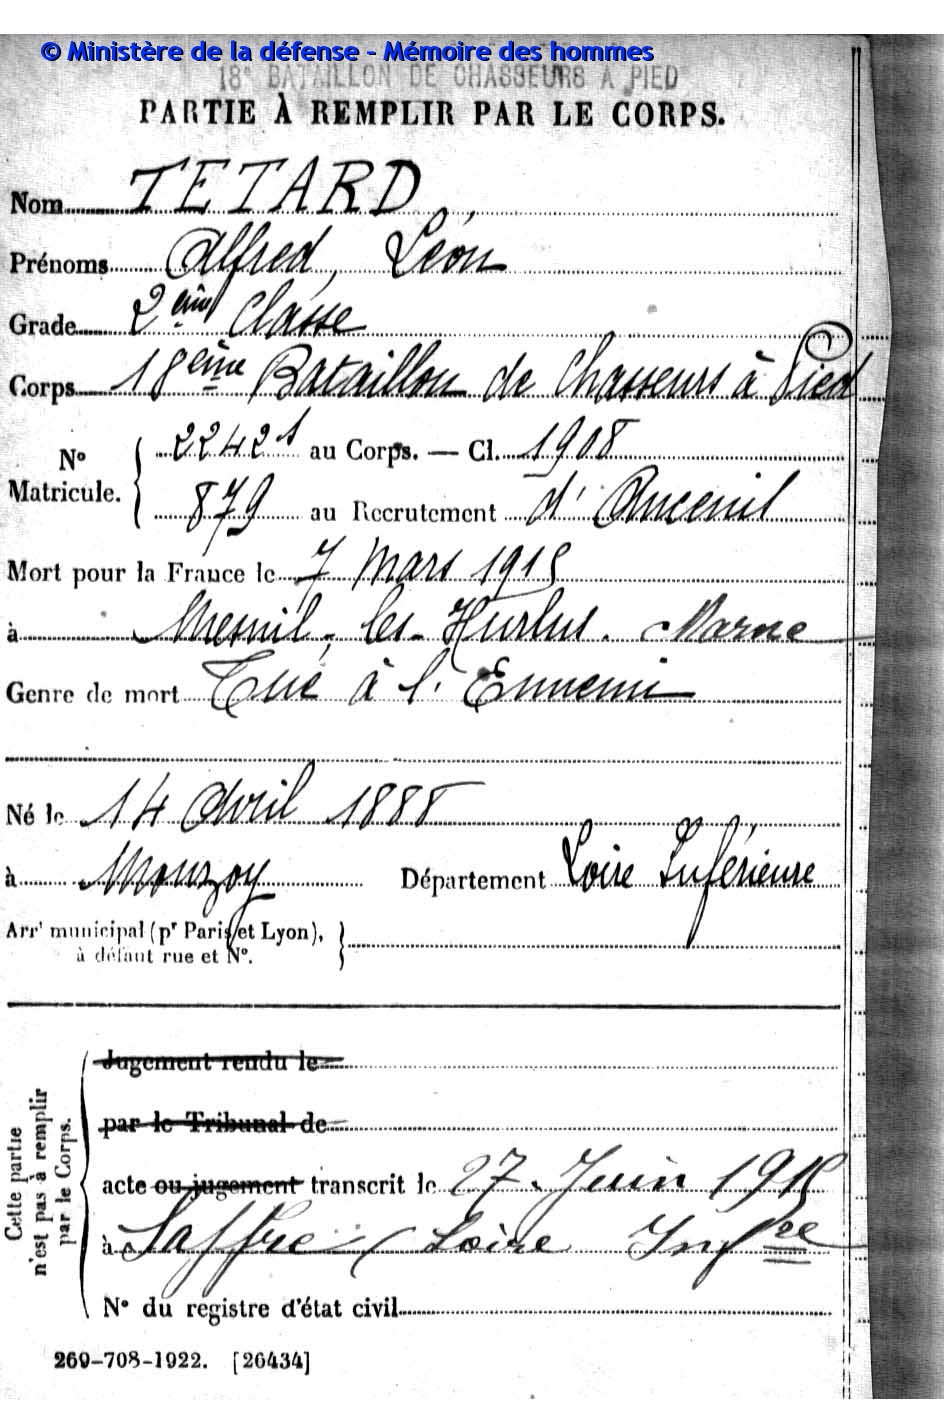 © Ministère de la défense - Mémoire des hommes
18e BATAILLON DE CHASSEURS A PIED
PARTIE À REMPLIR PAR LE CORPS.
Nom TETARD
Prénoms Alfred, Léon
Grade 2ème Classe
Corps 18ème Bataillon de Chasseurs à Pied
No Matricule. 
22421 au Corps. — Cl. 1908
879 au Recrutement d'Ancenil
Mort pour la France le 7 Mars 1915
à Mesnil-les-Hurlus. Marne
Genre de mort Tué à l'Ennemi
Né le 14 Avril 1888
à Mouzoy Département Loire Inférieure
Arrt municipal (pr Paris et Lyon),
à défaut rue et No.
Cette partie n'est pas à remplir par le Corps.
Jugement rendu le
par le Tribunal de
acte ou jugement transcrit le 27 Juin 1915
à Saffré (Loire Infre
No du registre d'état civil
269-708-1922. [26434]